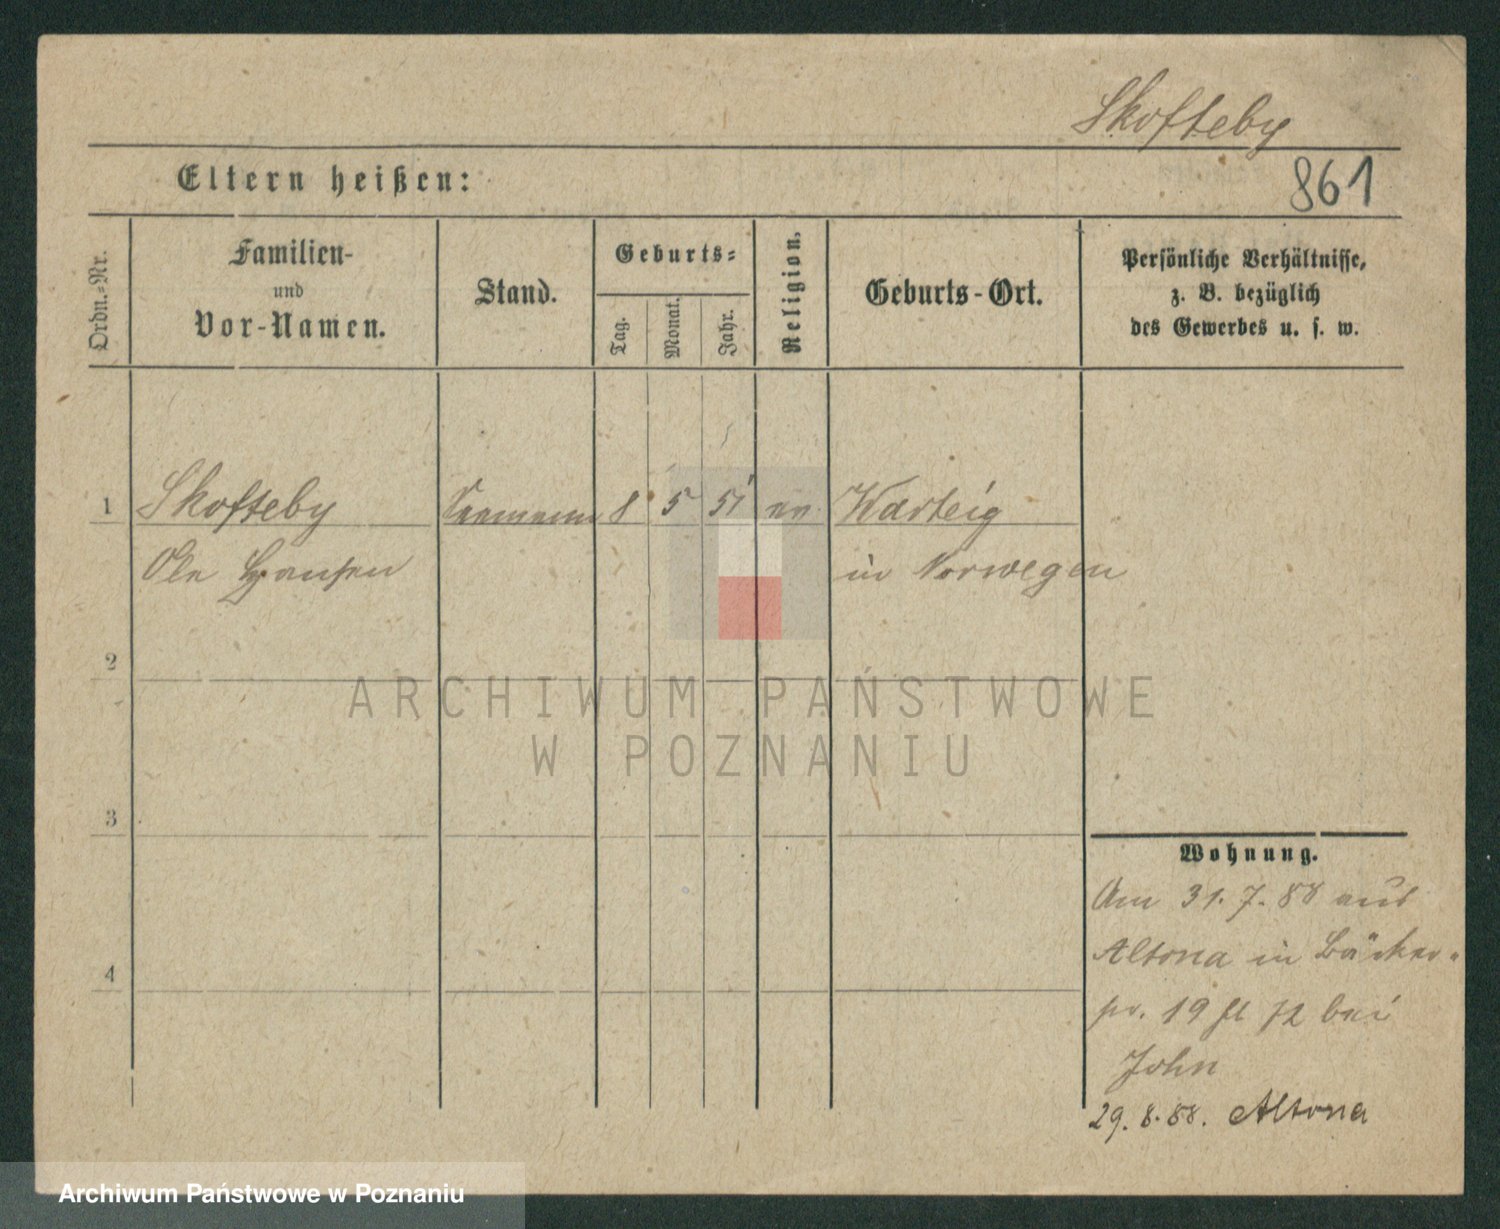 Skofteby
Eltern heißen:
861
Ordn.-Nr.
Familien-
und
Vor-Namen.
Stand.
Geburts-
Tag.
Monat.
Jahr.
Religion.
Geburts-Ort.
Persönliche Verhältnisse,
z. B. bezüglich
des Gewerbes u. s. w.
1 Skofteby Seemann 8 5 51 ev Varteig
Ole Hansen in Norwegen
2
ARCHIWUM PAŃSTWOWE
W POZNANIU
3
Wohnung.
Am 31. 7. 88 aus
Altona in Bäcker-
19 bei
4
John
29. 8. 88. Altona
Archiwum Państwowe w Poznaniu